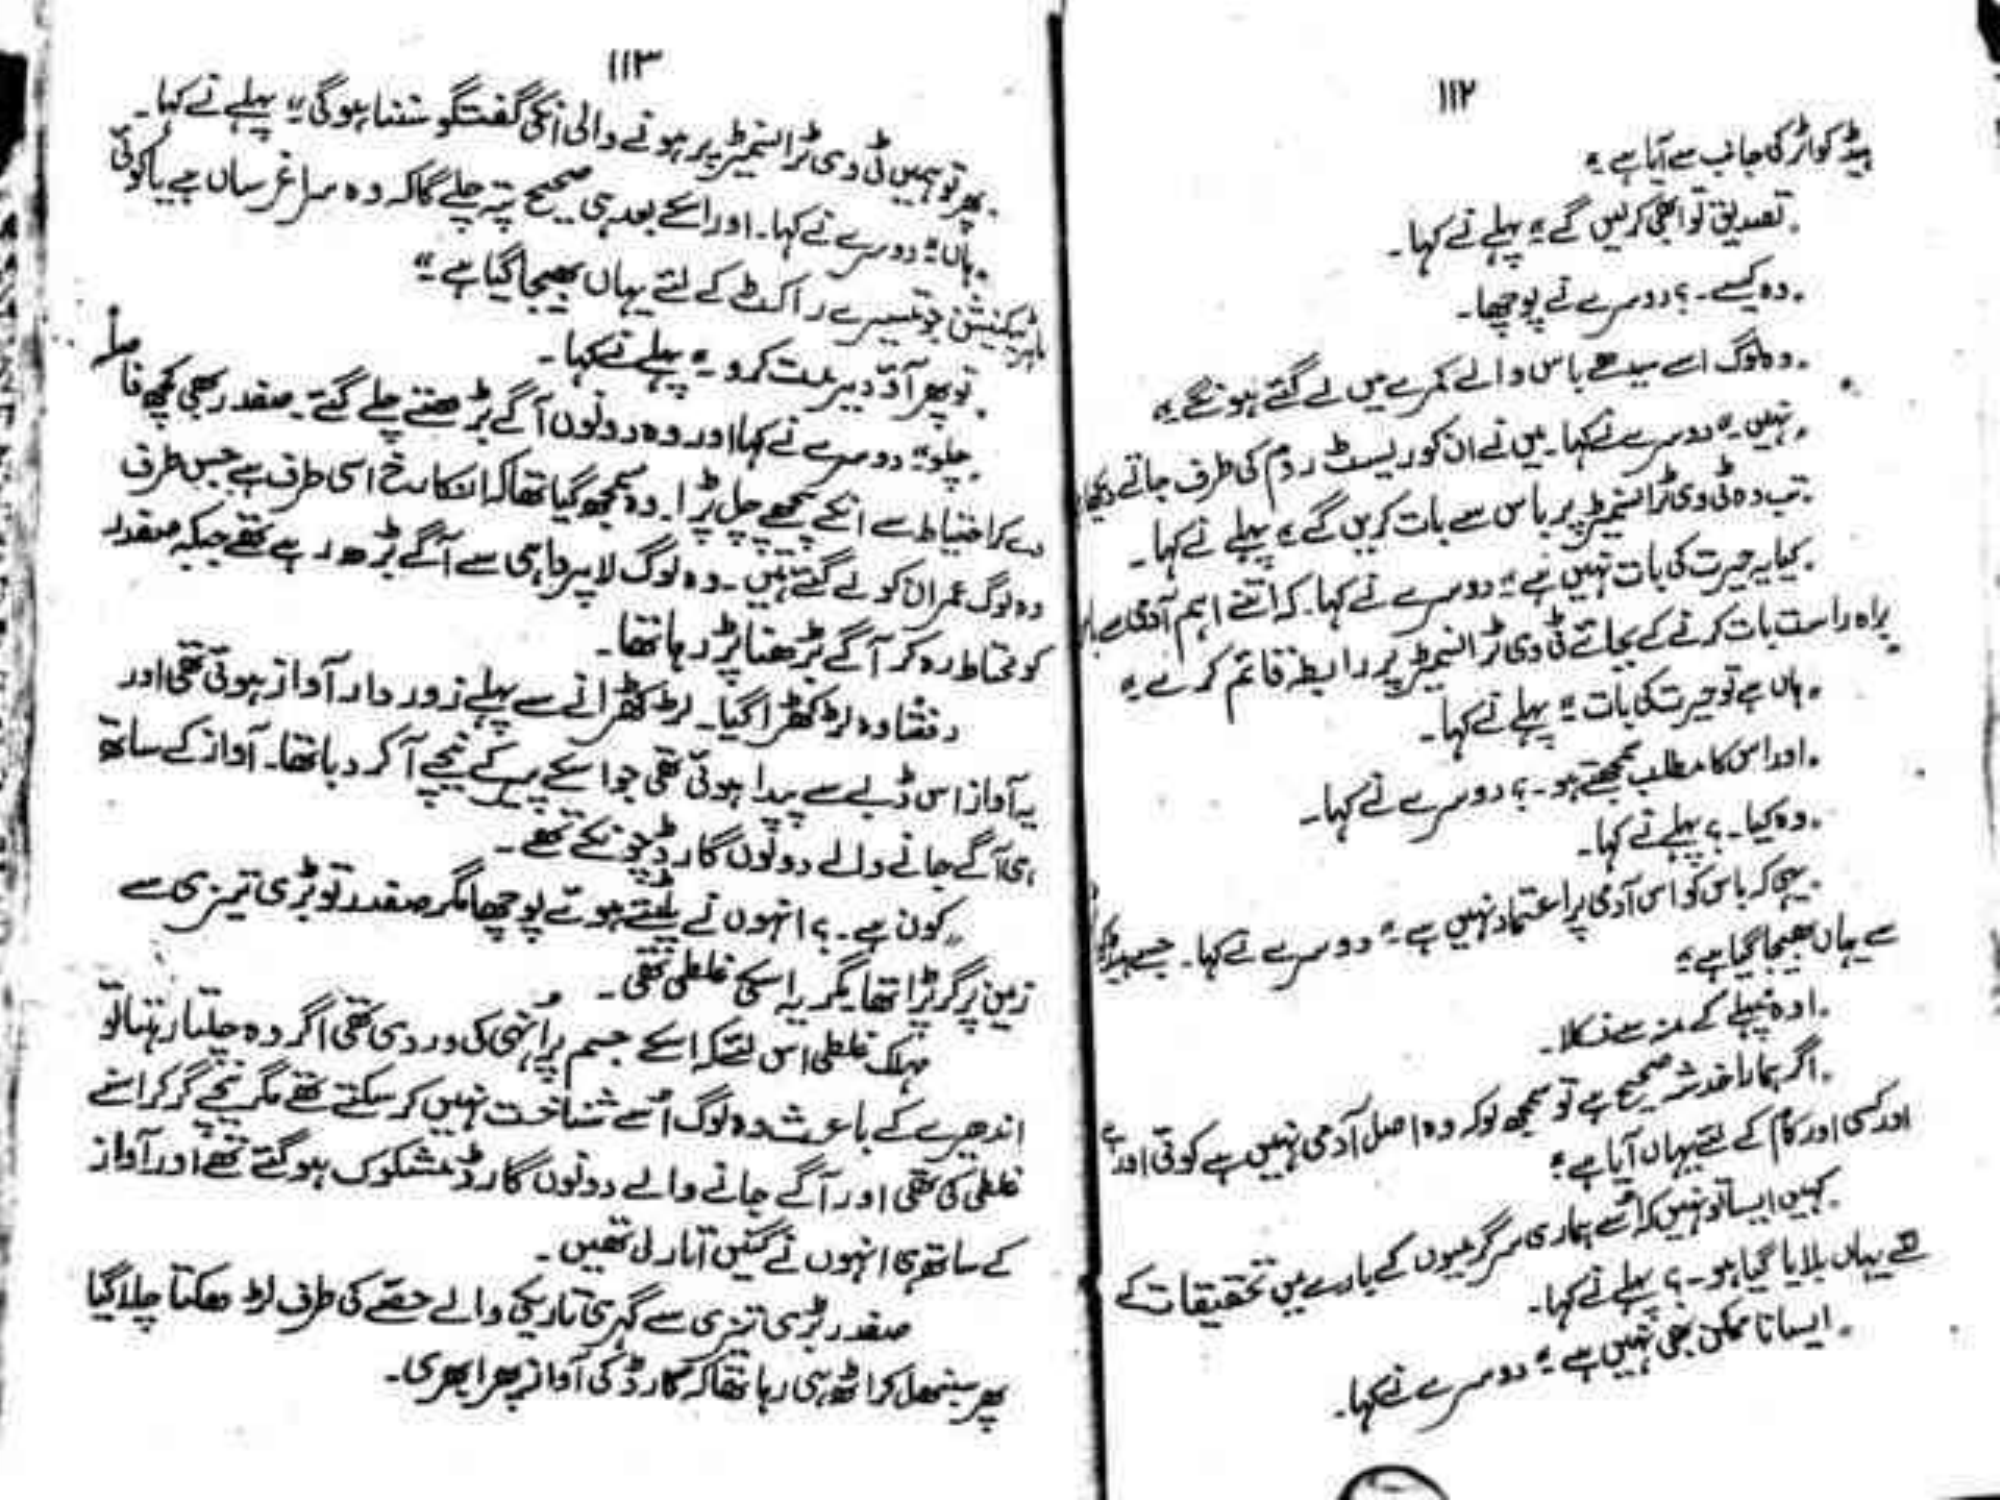 ۱۱۲
ہیڈ کوارٹر کی جانب سے آیا ہے۔"
"تصدیق تو ابھی کر لیں گے۔" پہلے نے کہا۔
"وہ کیسے۔؟ دوسرے نے پوچھا۔
"وہ لوگ اسے سیدھے باس والے کمرے میں لے گئے ہونگے۔"
"نہیں۔" دوسرے نے کہا۔ میں نے ان کو ریسٹ روم کی طرف جاتے دیکھا
"تب وہ ٹی وی ٹرانسمیٹر پر باس سے بات کریں گے۔" پہلے نے کہا۔
"کیا یہ حیرت کی بات نہیں ہے۔" دوسرے نے کہا۔ کہ اتنے اہم آدمی سے باس
براہ راست بات کرنے کے بجائے ٹی وی ٹرانسمیٹر پر رابطہ قائم کرے۔"
"ہاں ہے تو حیرت کی بات۔" پہلے نے کہا۔
"اور اس کا مطلب سمجھتے ہو۔؟ دوسرے نے کہا۔
"وہ کیا۔؟ پہلے نے کہا۔
"یہی کہ باس کو اس آدمی پر اعتماد نہیں ہے۔" دوسرے نے کہا۔ جسے
سے یہاں بھیجا گیا ہے۔"
"اوہ پہلے کے منہ سے نکلا۔
"اگر ہمارا خدشہ صحیح ہے تو سمجھ لو کہ وہ اصل آدمی نہیں ہے کوئی اور ہے
اور کسی اور کام کے لئے یہاں آیا ہے۔"
"کہیں ایسا تو نہیں کہ اُسے ہماری سرگرمیوں کے بارے میں تحقیقات کے
لئے یہاں بلایا گیا ہو۔؟ پہلے نے کہا۔
"ایسا نا ممکن بھی نہیں ہے۔" دوسرے نے کہا۔
۱۱۳
"پھر تو ہمیں ٹی وی ٹرانسمیٹر پر ہونے والی انکی گفتگو سننا ہو گی۔" پہلے نے کہا۔
"ہاں۔" دوسرے نے کہا۔ اور اسکے بعد ہی صحیح پتہ چلے گا کہ وہ سراغرساں ہے یا کوئی
ماہر ٹیکنیشن جو تیسرے راکٹ کے لئے یہاں بھیجا گیا ہے۔"
"تو پھر آؤ دیر مت کرو۔" پہلے نے کہا۔
"چلو۔" دوسرے نے کہا اور وہ دونوں آگے بڑھتے چلے گئے۔ صفدر بھی کچھ فاصلہ
دے کر احتیاط سے انکے پیچھے چل پڑا۔ وہ سمجھ گیا تھا کہ انکا رخ اسی طرف ہے جس طرف
وہ لوگ عمران کو لے گئے ہیں۔ وہ لوگ لاپرواہی سے آگے بڑھ رہے تھے جبکہ صفدر
کو محتاط رہ کر آگے بڑھنا پڑ رہا تھا۔
دفعتاً وہ لڑکھڑا گیا۔ لڑکھڑانے سے پہلے زور دار آواز ہوئی تھی اور
یہ آواز اس ڈبے سے پیدا ہوئی تھی جو اسکے پیر کے نیچے آ کر دبا تھا۔ آواز کے ساتھ
ہی آگے جانے والے دونوں گارڈ چونکے تھے۔
"کون ہے۔؟ انہوں نے پلٹتے ہوئے پوچھا مگر صفدر تو بڑی تیزی سے
زمین پر گر پڑا تھا مگر یہ اسکی غلطی تھی۔
مہلک غلطی اس لئے کہ اسکے جسم پر اُنہی کی وردی تھی اگر وہ چلتا رہتا تو
اندھیرے کے باعث وہ لوگ اُسے شناخت نہیں کر سکتے تھے مگر نیچے گر کر اسنے
غلطی کی تھی اور آگے جانے والے دونوں گارڈ مشکوک ہو گئے تھے اور آواز
کے ساتھ ہی انہوں نے گنیں اتار لی تھیں۔
صفدر بڑی تیزی سے گہری تاریکی والے حصّے کی طرف لڑھکتا چلا گیا
پھر سنبھل کر اٹھ ہی رہا تھا کہ گارڈ کی آواز پھر ابھری۔